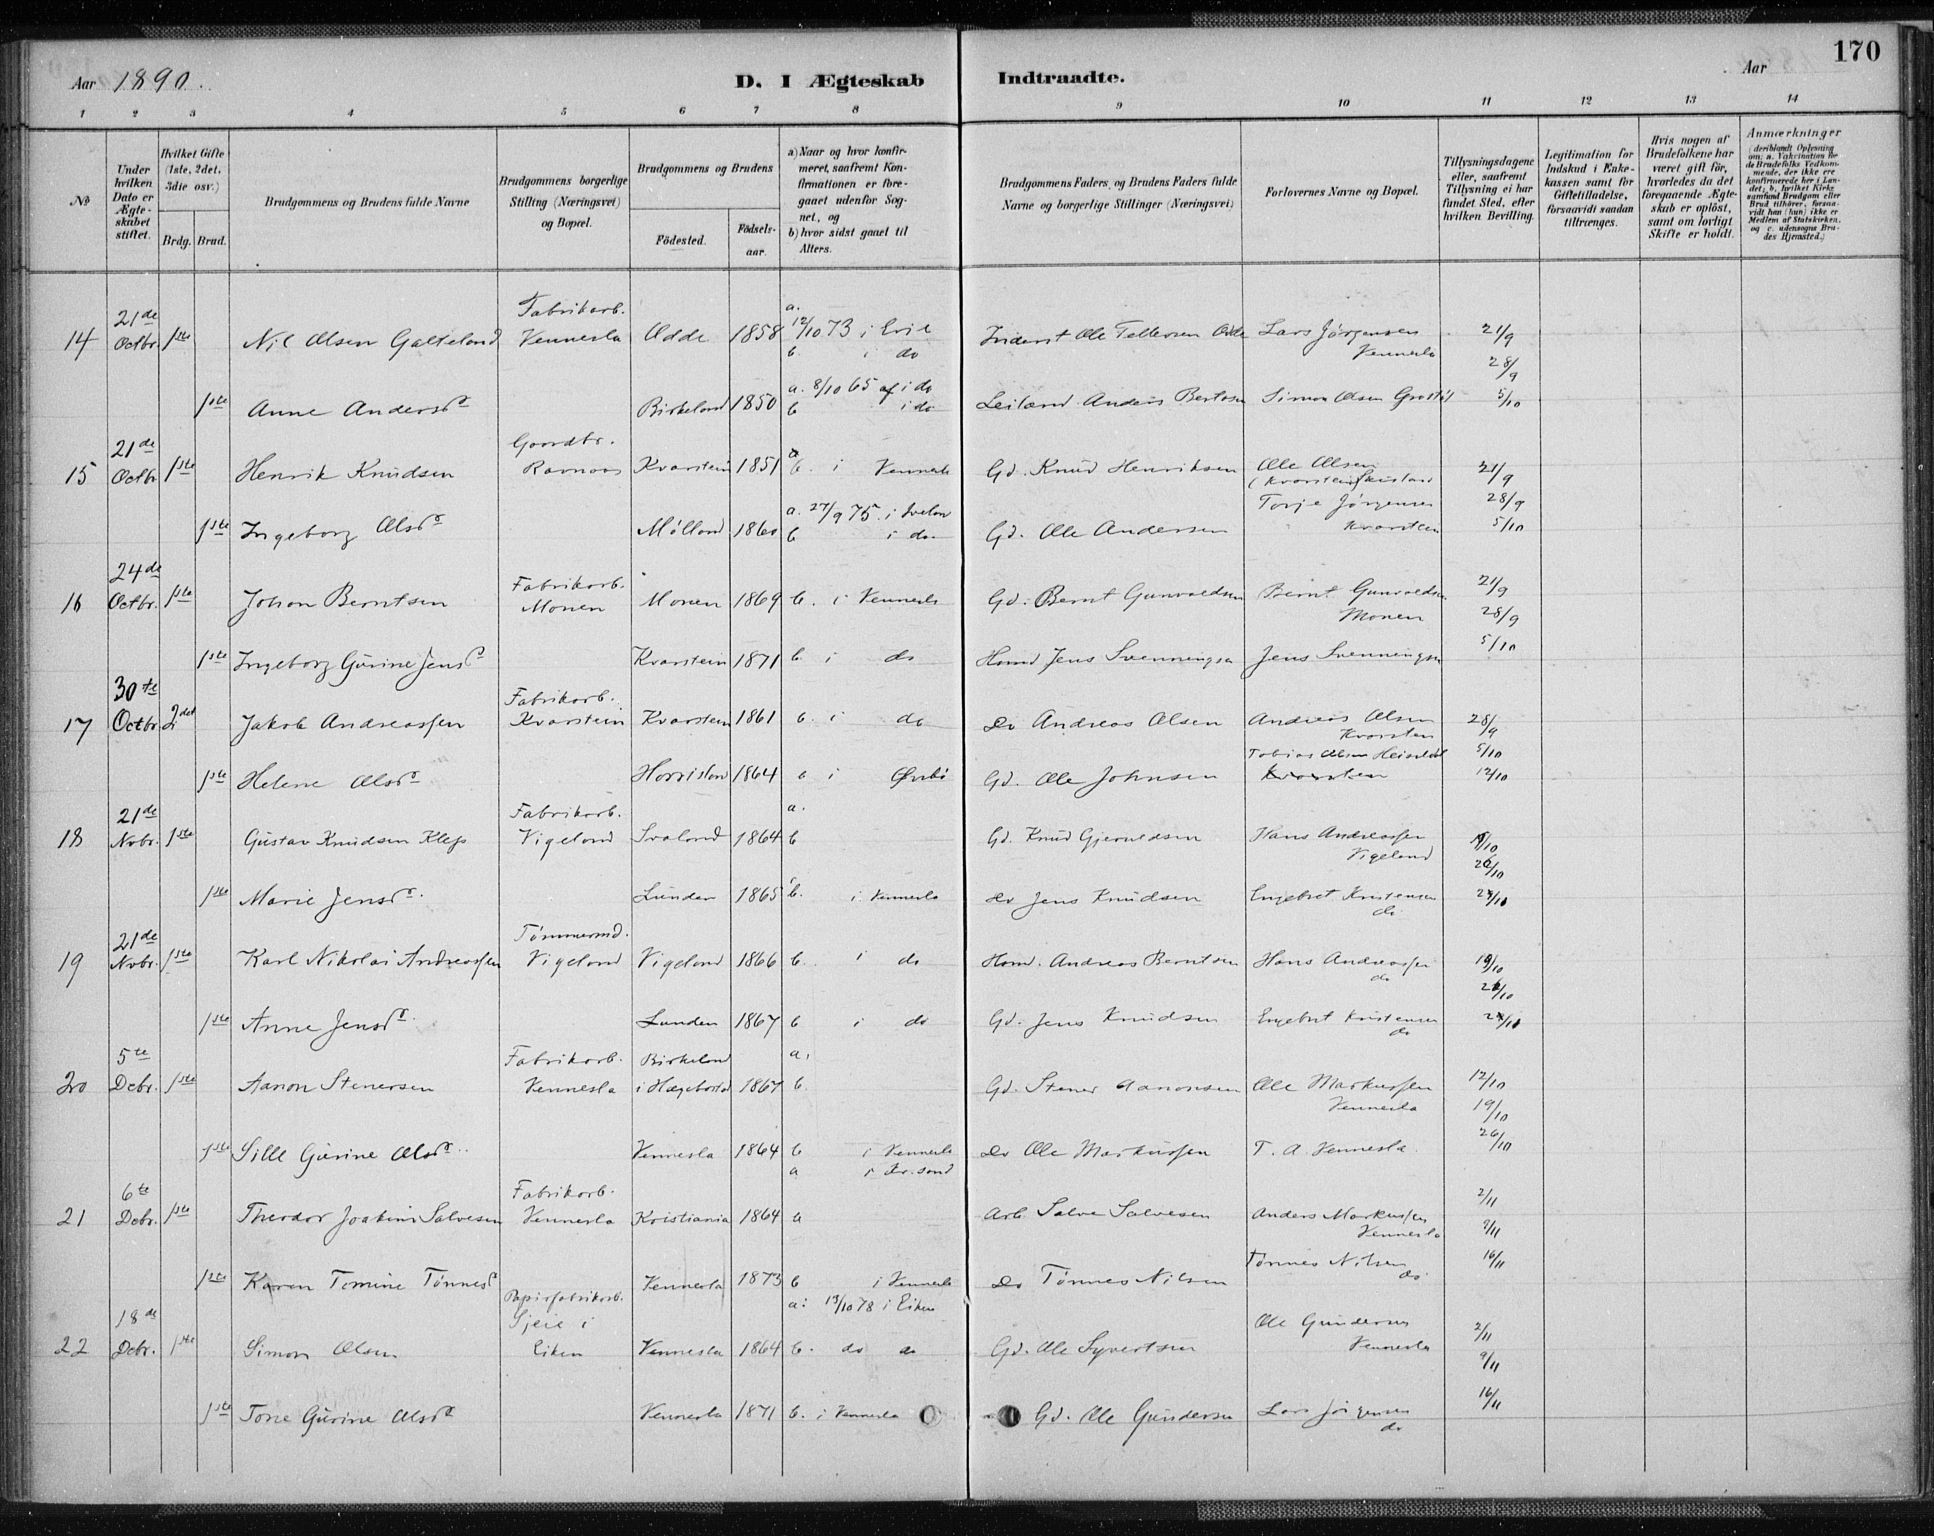 170
Aar 1890. D. I Ægteskab Indtraadte. Aar
1 2 3 4 5 6 7 8 9 10 11 12 13 14
No
Under hvilken Dato er Ægteskabet stiftet.
Hvilket Gifte (1ste, 2det, 3die osv.)
Brdg. Brud.
Brudgommens og Brudens fulde Navne
Brudgommens borgerlige Stilling (Næringsvei) og Bopæl.
Brudgommens og Brudens
Födested. Födsels-aar.
a) Naar og hvor konfirmeret, saafremt Konfirmationen er foregaaet udenfor Sognet, og
b) hvor sidst gaaet til Alters.
Brudgommens Faders og Brudens Faders fulde Navne og borgerlige Stillinger (Næringsvei)
Forlovernes Navne og Bopæl.
Tillysningsdagene eller, saafremt Tillysning ei har fundet Sted, efter hvilken Bevilling.
Legitimation for Indskud i Enkekassen samt for Giftetilladelse, forsaavidt saadan tiltrænges.
Hvis nogen af Brudefolkene har været gift för, hvorledes da det foregaaende Ægteskab er oplöst, samt om lovligt Skifte er holdt.
Anmærkninger (deriblandt Oplysning om: a. Vakcination for de Brudefolks Vedkommende, der ikke ere konfirmerede her i Landet; b. hvilket Kirkesamfund Brudgom eller Brud tilhörer, forsaavidt han (hun) ikke er Medlem af Statskirken, og c. udensogns Brudes Hjemsted.)
14 21de Octbr. 1ste Nil Olsen Galteland Fabrikarb. Vennesla Odde 1858 a. 12/10 73 i Evie b. i do Inderst Ole Tellersen Odde Lars Jørgensen Vennesla 21/9 28/9
1ste Anne Andersd. Birkeland 1850 a. 8/10 65 i do b i do Anders Simon Olsen 5/10
15 21de Octbr 1ste Henrik Knudsen Gaardbr. Ravnaas Kvarstein 1851 a b. i Vennesla Gd. Knud Henriksen Ole Olsen 21/9
1ste Ingeborg Olsd. Mølland 1860 a. 27/9 75. i b i do Gd. Ole Andersen Torje Jørgensen Kvarstein 28/9 5/10
16 24de Octbr. 1ste Johan Berntsen Fabrikarb. Monen Monen 1869 b. i Vennesla Gd. Bernt Gunvaldsen Bernt Gunvaldsen Monen 21/9 28/9
1ste Ingeborg Gurine Jensd. Kvarstein 1871 b. i do Husmd Jens Svenningsen Jens Svenningsen 5/10
17 30te Octbr 2det Jakob Andreassen Fabrikarb. Kvarstein Kvarstein 1861 b. i do Do Andreas Olsen Andreas Olsen Kvarstein 28/9
1ste Helene Olsd. 1864 b i Øvrebø Gd. Ole Johnsen Tobias Olsen Kvarstein 5/10 12/10
18 21de Novbr. 1ste Gustav Knudsen Klep Fabrikarb. Vigeland Svaland 1864 a. b Gd. Knud Gjeruldsen Hans Andreassen Vigeland 19/10 26/10
1ste Marie Jensd. Lunden 1865 b. i Vennesla do Jens Knudsen Engebret Kristensen do. 2/11
19 21de Novbr. 1ste Karl Nikolai Andreassen Tømmermd. Vigeland Vigeland 1866 b. i do Husmd. Andreas Berntsen Hans Andreassen do 19/10 26/10
1ste Anne Jensd. Lunden 1867 b i do Gd. Jens Knudsen Engebret Kristensen do 2/11
20 5te Debr. 1ste Aanon Stenersen Fabrikarb. Vennesla Birkeland i Hægebostad 1867 a. b. Gd. Stener Aanonsen Ole Markussen Vennesla 12/10 19/10
1ste Sille Gurine Olsd. Vennesla 1864 b i Vennesla Do Ole Markussen T. A. Vennesla. 26/10
21 6te Debr. 1ste Theodor Joakim Salvesen Fabrikarb. Vennesla Kristiania 1864 a i Kr.sand a Arb Salve Salvesen Anders Markussen Vennesla 2/11 9/11
1ste Karen Tomine Tønnesd. Vennesla 1873 b i Vennesla Do Tønnes Nilsen Tønnes Nilsen do. 16/11
22 18de Debr. 1ste Simon Olsen Papirfabrikarb. i Eiken Vennesla 1864 a: 13/10 78 i Eiken b. do do Gd. Ole Syvertsen Ole Gundersen Vennesla 2/11 9/11
1ste Tone Gurine Olsd. Vennesla 1871 b. i Vennesla Gd. Ole Gundersen Lars Jørgensen do 16/11